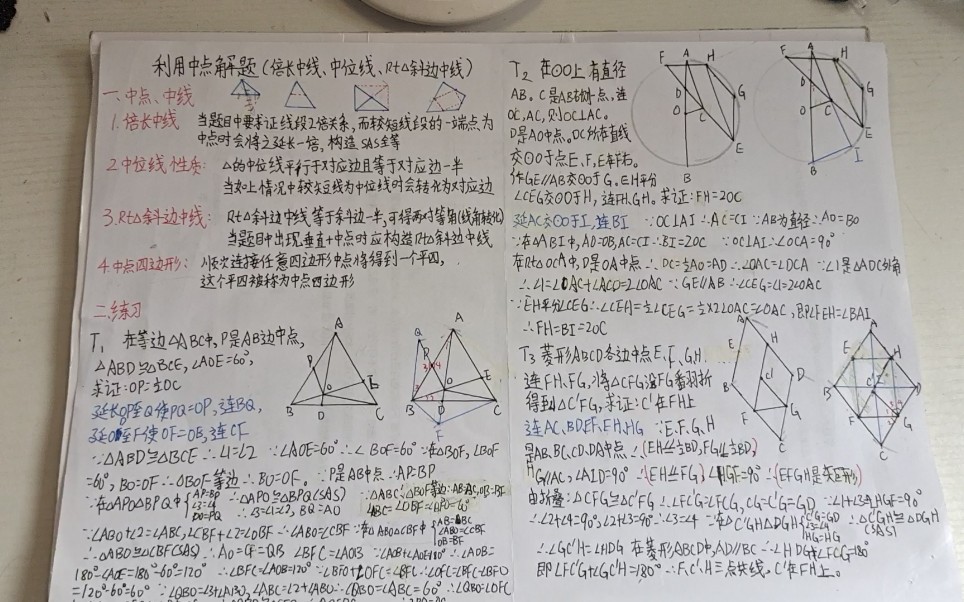 利用中点解题(倍长中线、中位线、Rt△斜边中线)
一、中点、中线
1.倍长中线 当题目中要求证线段2倍关系,而较短线段的一端点为
中点时会将之延长一倍,构造SAS全等
2.中位线性质: △的中位线平行于对应边且等于对应边一半
当如上情况中较短线为中位线时会转化为对应边
3.Rt△斜边中线: Rt△斜边中线等于斜边一半,可得两对等角(线角转化)
当题目中出现垂直+中点时应构造Rt△斜边中线
4.中点四边形: 顺次连接任意四边形中点将得到一个平四,
这个平四被称为中点四边形
二、练习
T1 在等边△ABC中,P是AB边中点,
△ABD≌△BCE,∠AOE=60°,
求证:OP=½OC
延长OP至Q使PQ=OP,连BQ,
延OE至F使OF=OB,连CF
∵△ABD≌△BCE∴∠1=∠2 ∵∠AOE=60°∴∠BOF=60°∵在△BOF,∠BOF
=60°,BO=OF∴△BOF等边∴BO=OF。∵P是AB中点∴AP=BP
∵在△APO△BPQ中{AP=BP ∠3=∠4 PO=PQ ∴△APO≌△BPQ(SAS) ∴∠3=∠1=∠2,BQ=AO
∵△ABC、△BOF等边∴AB=BC,OB=BF
∠ABC=∠OBF=60°
∵∠ABO+∠2=∠ABC,∠CBF+∠2=∠OBF∴∠ABO=∠CBF∵在△ABO△CBF中{AB=BC ∠ABO=∠CBF OB=BF
∴△ABO≌△CBF(SAS)∴AO=CF=QB ∠BFC=∠AOB∵∠AOB+∠AOE=180°∴∠AOB=
180°-∠AOE=180°-60°=120° ∴∠BFC=∠AOB=120°∵∠BFO+∠OFC=∠BFC∴∠OFC=∠BFC-∠BFO
=120°-60°=60° ∵∠QBO=∠3+∠ABO,∠ABC=∠2+∠ABO∴∠QBO=∠ABC=60°∴∠QBO=∠OFC
T2 在⊙O上有直径
AB。C是AB右侧一点,连
OC,AC,则OC⊥AC。
D是AO中点。DC所在直线
交⊙O于点E、F,E在右。
作GE∥AB交⊙O于G。EH平分
∠CEG交⊙O于H,连FH、GH。求证:FH=2OC
延AC交⊙O于I,连BI ∵OC⊥AI∴AC=CI∵AB为直径∴AO=BO
∵在△ABI中,AO=OB,AC=CI∴BI=2OC ∵OC⊥AI∴∠OCA=90°
在Rt△OCA中,D是OA中点∴DC=½AO=AD∴∠OAC=∠DCA ∵∠1是△ADC外角
∴∠1=∠OAC+∠ACO=2∠OAC ∵GE∥AB∴∠CEG=∠1=2∠OAC
∵EH平分∠CEG∴∠CEH=½∠CEG=½×2∠OAC=∠OAC,即∠FEH=∠BAI
∴FH=BI=2OC
T3 菱形ABCD各边中点E、F、G、H
连FH、FG,将△CFG沿FG翻折
得到△C'FG,求证:C'在FH上
连AC、BD、EF、EH、HG ∵E、F、G、H
是AB、BC、CD、DA中点∴(EH∥½BD,FG∥½BD)
HG∥AC,∠AID=90°∴(EH∥FG)∠HGF=90°∴(EFGH是矩形)
由折叠:△CFG≌△C'FG∴∠FC'G=∠FCG,CG=C'G=GD ∵∠1+∠3=∠HGF=90°
∴∠2+∠4=90°,∠2+∠3=90°∴∠3=∠4∵在△C'GH△DGH{C'G=GD ∠3=∠4 HG=HG ∴△C'GH≌△DGH(SAS)
∴∠GC'H=∠HDG 在菱形ABCD中,AD∥BC∴∠HDG+∠FCG=180°
即∠FC'G+∠GC'H=180°∴F、C'、H三点共线,C'在FH上。